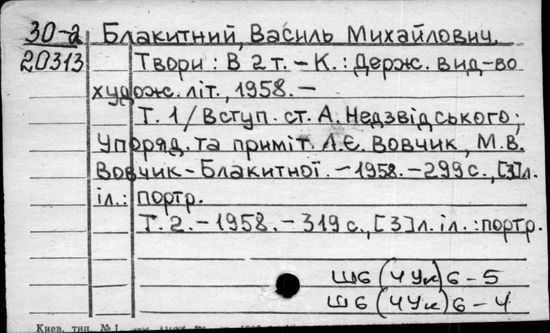 30-а Блакитний, Василь Михайлович.
20313 Твори : В 2 т. – К. : Держ. вид-во
худож. літ., 1958. –
Т. 1 / Вступ. ст. А. Недзвідського ;
Упоряд. та приміт. Л.Є. Вовчик, М.В.
Вовчик-Блакитної. – 1958. – 299 с., [3] л.
іл. : портр.
Т. 2. – 1958. – 319 с., [3] л. іл. : портр.
Ш6 (4Ук) 6 – 5
Ш6 (4Ук) 6 – 4
Киев, тип. № 1